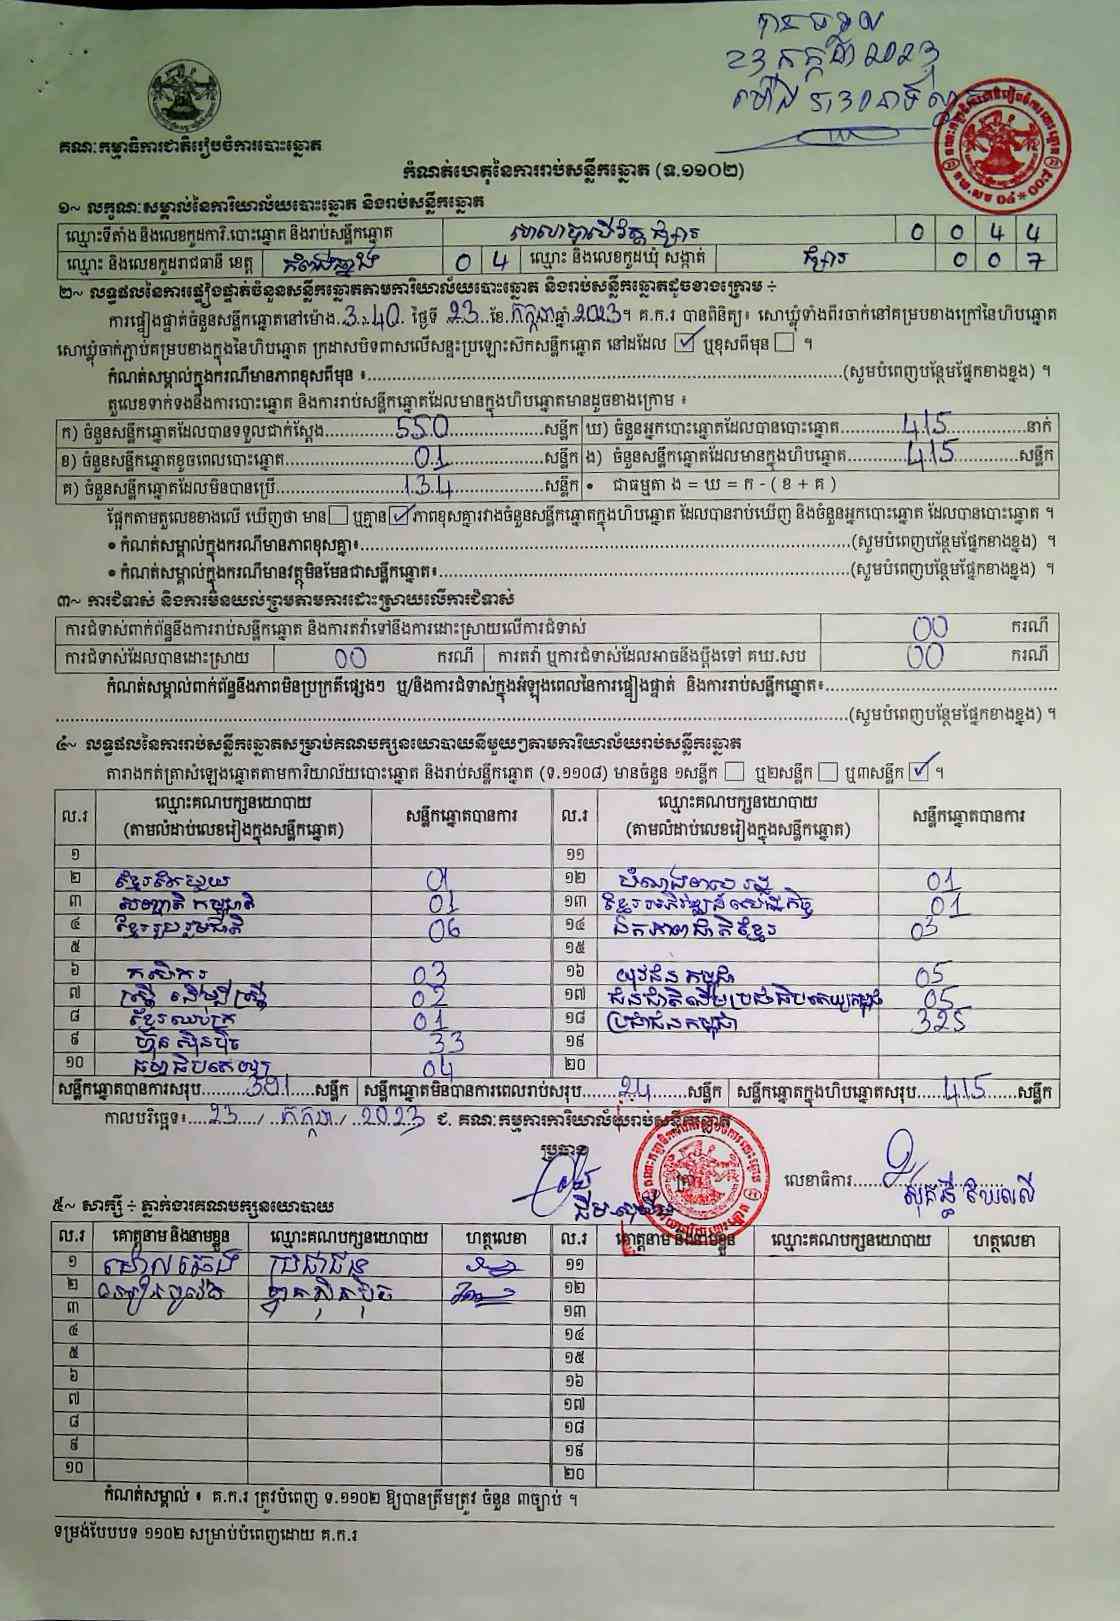 បានទទួល
23 កក្កដា 2023
ម៉ោង 5:30នាទី ល្ងាច
គណៈកម្មាធិការជាតិរៀបចំការបោះឆ្នោត
កំណត់ហេតុនៃការរាប់សន្លឹកឆ្នោត (ទ.១១០២)
១~ លក្ខណៈសម្គាល់នៃការិយាល័យបោះឆ្នោត និងរាប់សន្លឹកឆ្នោត
ឈ្មោះទីតាំង និងលេខកូដការិ.បោះឆ្នោត និងរាប់សន្លឹកឆ្នោត 0 0 4 4
ឈ្មោះ និងលេខកូដរាជធានី ខេត្ត កំពង់ឆ្នាំង 0 4 ឈ្មោះ និងលេខកូដឃុំ សង្កាត់ ផ្សារ 0 0 7
២~ លទ្ធផលនៃការផ្ទៀងផ្ទាត់ចំនួនសន្លឹកឆ្នោតតាមការិយាល័យបោះឆ្នោត និងរាប់សន្លឹកឆ្នោតដូចខាងក្រោម ÷
ការផ្ទៀងផ្ទាត់ចំនួនសន្លឹកឆ្នោតនៅម៉ោង..3..40.. ថ្ងៃទី 23..ខែ.កក្កដាឆ្នាំ.2023។ គ.ក.រ បានពិនិត្យ៖ សោឃ្លុំទាំងពីរចាក់នៅគម្របខាងក្រៅនៃហិបឆ្នោត
សោឃ្លុំចាក់ភ្ជាប់គម្របខាងក្នុងនៃហិបឆ្នោត ក្រដាសបិទពាសលើសន្ទះប្រឡោះស៊កសន្លឹកឆ្នោត នៅដដែល ☑ ឬខុសពីមុន ☐ ។
កំណត់សម្គាល់ក្នុងករណីមានភាពខុសពីមុន ៖........(សូមបំពេញបន្ថែមផ្នែកខាងខ្នង) ។
តួលេខទាក់ទងនឹងការបោះឆ្នោត និងការរាប់សន្លឹកឆ្នោតដែលមានក្នុងហិបឆ្នោតមានដូចខាងក្រោម ៖
ក) ចំនួនសន្លឹកឆ្នោតដែលបានទទួលជាក់ស្តែង........550........សន្លឹក ឃ) ចំនួនអ្នកបោះឆ្នោតដែលបានបោះឆ្នោត........415........នាក់
ខ) ចំនួនសន្លឹកឆ្នោតខូចពេលបោះឆ្នោត........01........សន្លឹក ង) ចំនួនសន្លឹកឆ្នោតដែលមានក្នុងហិបឆ្នោត........415........សន្លឹក
គ) ចំនួនសន្លឹកឆ្នោតដែលមិនបានប្រើ........134........សន្លឹក • ជាធម្មតា ង = ឃ = ក - ( ខ + គ )
ផ្អែកតាមតួលេខខាងលើ ឃើញថា មាន ☐ ឬគ្មាន ☑ ភាពខុសគ្នារវាងចំនួនសន្លឹកឆ្នោតក្នុងហិបឆ្នោត ដែលបានរាប់ឃើញ និងចំនួនអ្នកបោះឆ្នោត ដែលបានបោះឆ្នោត ។
• កំណត់សម្គាល់ក្នុងករណីមានភាពខុសគ្នា៖........(សូមបំពេញបន្ថែមផ្នែកខាងខ្នង) ។
• កំណត់សម្គាល់ក្នុងករណីមានវត្ថុមិនមែនជាសន្លឹកឆ្នោត៖........(សូមបំពេញបន្ថែមផ្នែកខាងខ្នង) ។
៣~ ការជំទាស់ និងការមិនយល់ព្រមតាមការដោះស្រាយលើការជំទាស់
ការជំទាស់ពាក់ព័ន្ធនឹងការរាប់សន្លឹកឆ្នោត និងការតវ៉ាទៅនឹងការដោះស្រាយលើការជំទាស់ 00 ករណី
ការជំទាស់ដែលបានដោះស្រាយ 00 ករណី ការតវ៉ា ឬការជំទាស់ដែលអាចនឹងប្តឹងទៅ គឃ.សប 00 ករណី
កំណត់សម្គាល់ពាក់ព័ន្ធនឹងភាពមិនប្រក្រតីផ្សេងៗ ឬ/និងការជំទាស់ក្នុងអំឡុងពេលនៃការផ្ទៀងផ្ទាត់ និងការរាប់សន្លឹកឆ្នោត៖........
........(សូមបំពេញបន្ថែមផ្នែកខាងខ្នង) ។
៤~ លទ្ធផលនៃការរាប់សន្លឹកឆ្នោតសម្រាប់គណបក្សនយោបាយនីមួយៗតាមការិយាល័យរាប់សន្លឹកឆ្នោត
តារាងកត់ត្រាសំឡេងឆ្នោតតាមការិយាល័យបោះឆ្នោត និងរាប់សន្លឹកឆ្នោត (ទ.១១០៨) មានចំនួន ១សន្លឹក ☐ ឬ២សន្លឹក ☐ ឬ៣សន្លឹក ☑ ។
ល.រ ឈ្មោះគណបក្សនយោបាយ (តាមលំដាប់លេខរៀងក្នុងសន្លឹកឆ្នោត) សន្លឹកឆ្នោតបានការ ល.រ ឈ្មោះគណបក្សនយោបាយ (តាមលំដាប់លេខរៀងក្នុងសន្លឹកឆ្នោត) សន្លឹកឆ្នោតបានការ
១ ១១
២ ខ្មែរតែមួយ 01 ១២ 01
៣ សញ្ជាតិកម្ពុជា 01 ១៣ ខ្មែរអភិវឌ្ឍន៍សេដ្ឋកិច្ច 01
៤ ខ្មែររួបរួមជាតិ 06 ១៤ ឯកភាពជាតិខ្មែរ 03
៥ ១៥
៦ កសិករ 03 ១៦ យុវជនកម្ពុជា 05
៧ ស្ត្រីដើម្បីស្ត្រី 02 ១៧ ជនជាតិដើមប្រជាធិបតេយ្យកម្ពុជា 05
៨ ខ្មែរឈប់ក្រ 01 ១៨ ប្រជាជនកម្ពុជា 325
៩ ហ៊្វុនស៊ិនប៉ិច 33 ១៩
១០ ធម្មាធិបតេយ្យ 04 ២០
សន្លឹកឆ្នោតបានការសរុប........391.....សន្លឹក សន្លឹកឆ្នោតមិនបានការពេលរាប់សរុប......24.......សន្លឹក សន្លឹកឆ្នោតក្នុងហិបឆ្នោតសរុប.....415......សន្លឹក
កាលបរិច្ឆេទ៖....23..../..កក្កដា../..2023 ជ. គណៈកម្មការការិយាល័យរាប់សន្លឹកឆ្នោត
ប្រធាន
លេខាធិការ........
៥~ សាក្សី ÷ ភ្នាក់ងារគណបក្សនយោបាយ
ល.រ គោត្តនាម និងនាមខ្លួន ឈ្មោះគណបក្សនយោបាយ ហត្ថលេខា ល.រ គោត្តនាម និងនាមខ្លួន ឈ្មោះគណបក្សនយោបាយ ហត្ថលេខា
១ ប្រជាជន ១១
២ ហ៊្វុនស៊ិនប៉ិច ១២
៣ ១៣
៤ ១៤
៥ ១៥
៦ ១៦
៧ ១៧
៨ ១៨
៩ ១៩
១០ ២០
កំណត់សម្គាល់ ៖ គ.ក.រ ត្រូវបំពេញ ទ.១១០២ ឱ្យបានត្រឹមត្រូវ ចំនួន ៣ច្បាប់ ។
ទម្រង់បែបបទ ១១០២ សម្រាប់បំពេញដោយ គ.ក.រ